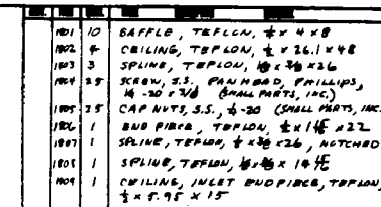 1801 10 BAFFLE, TEFLON, x 4 x 8
1802 4 CEILING, TEFLON, x 26.1 x 48
1803 3 SPLINE, TEFLON, x 26
1804 35 SCREW, S.S. PAN HEAD, PHILLIPS,
-20 x (SMALL PARTS, INC.)
1805 35 CAP NUTS, S.S., ¼-20 (SMALL PARTS, INC.
1806 1 END PIECE, TEFLON, x 22
1807 1 SPLINE, TEFLON, x 26, NOTCHED
1808 1 SPLINE, TEFLON,
1809 1 CEILING, INLET ENDPIECE, TEFLON,
x 5.95 x 15